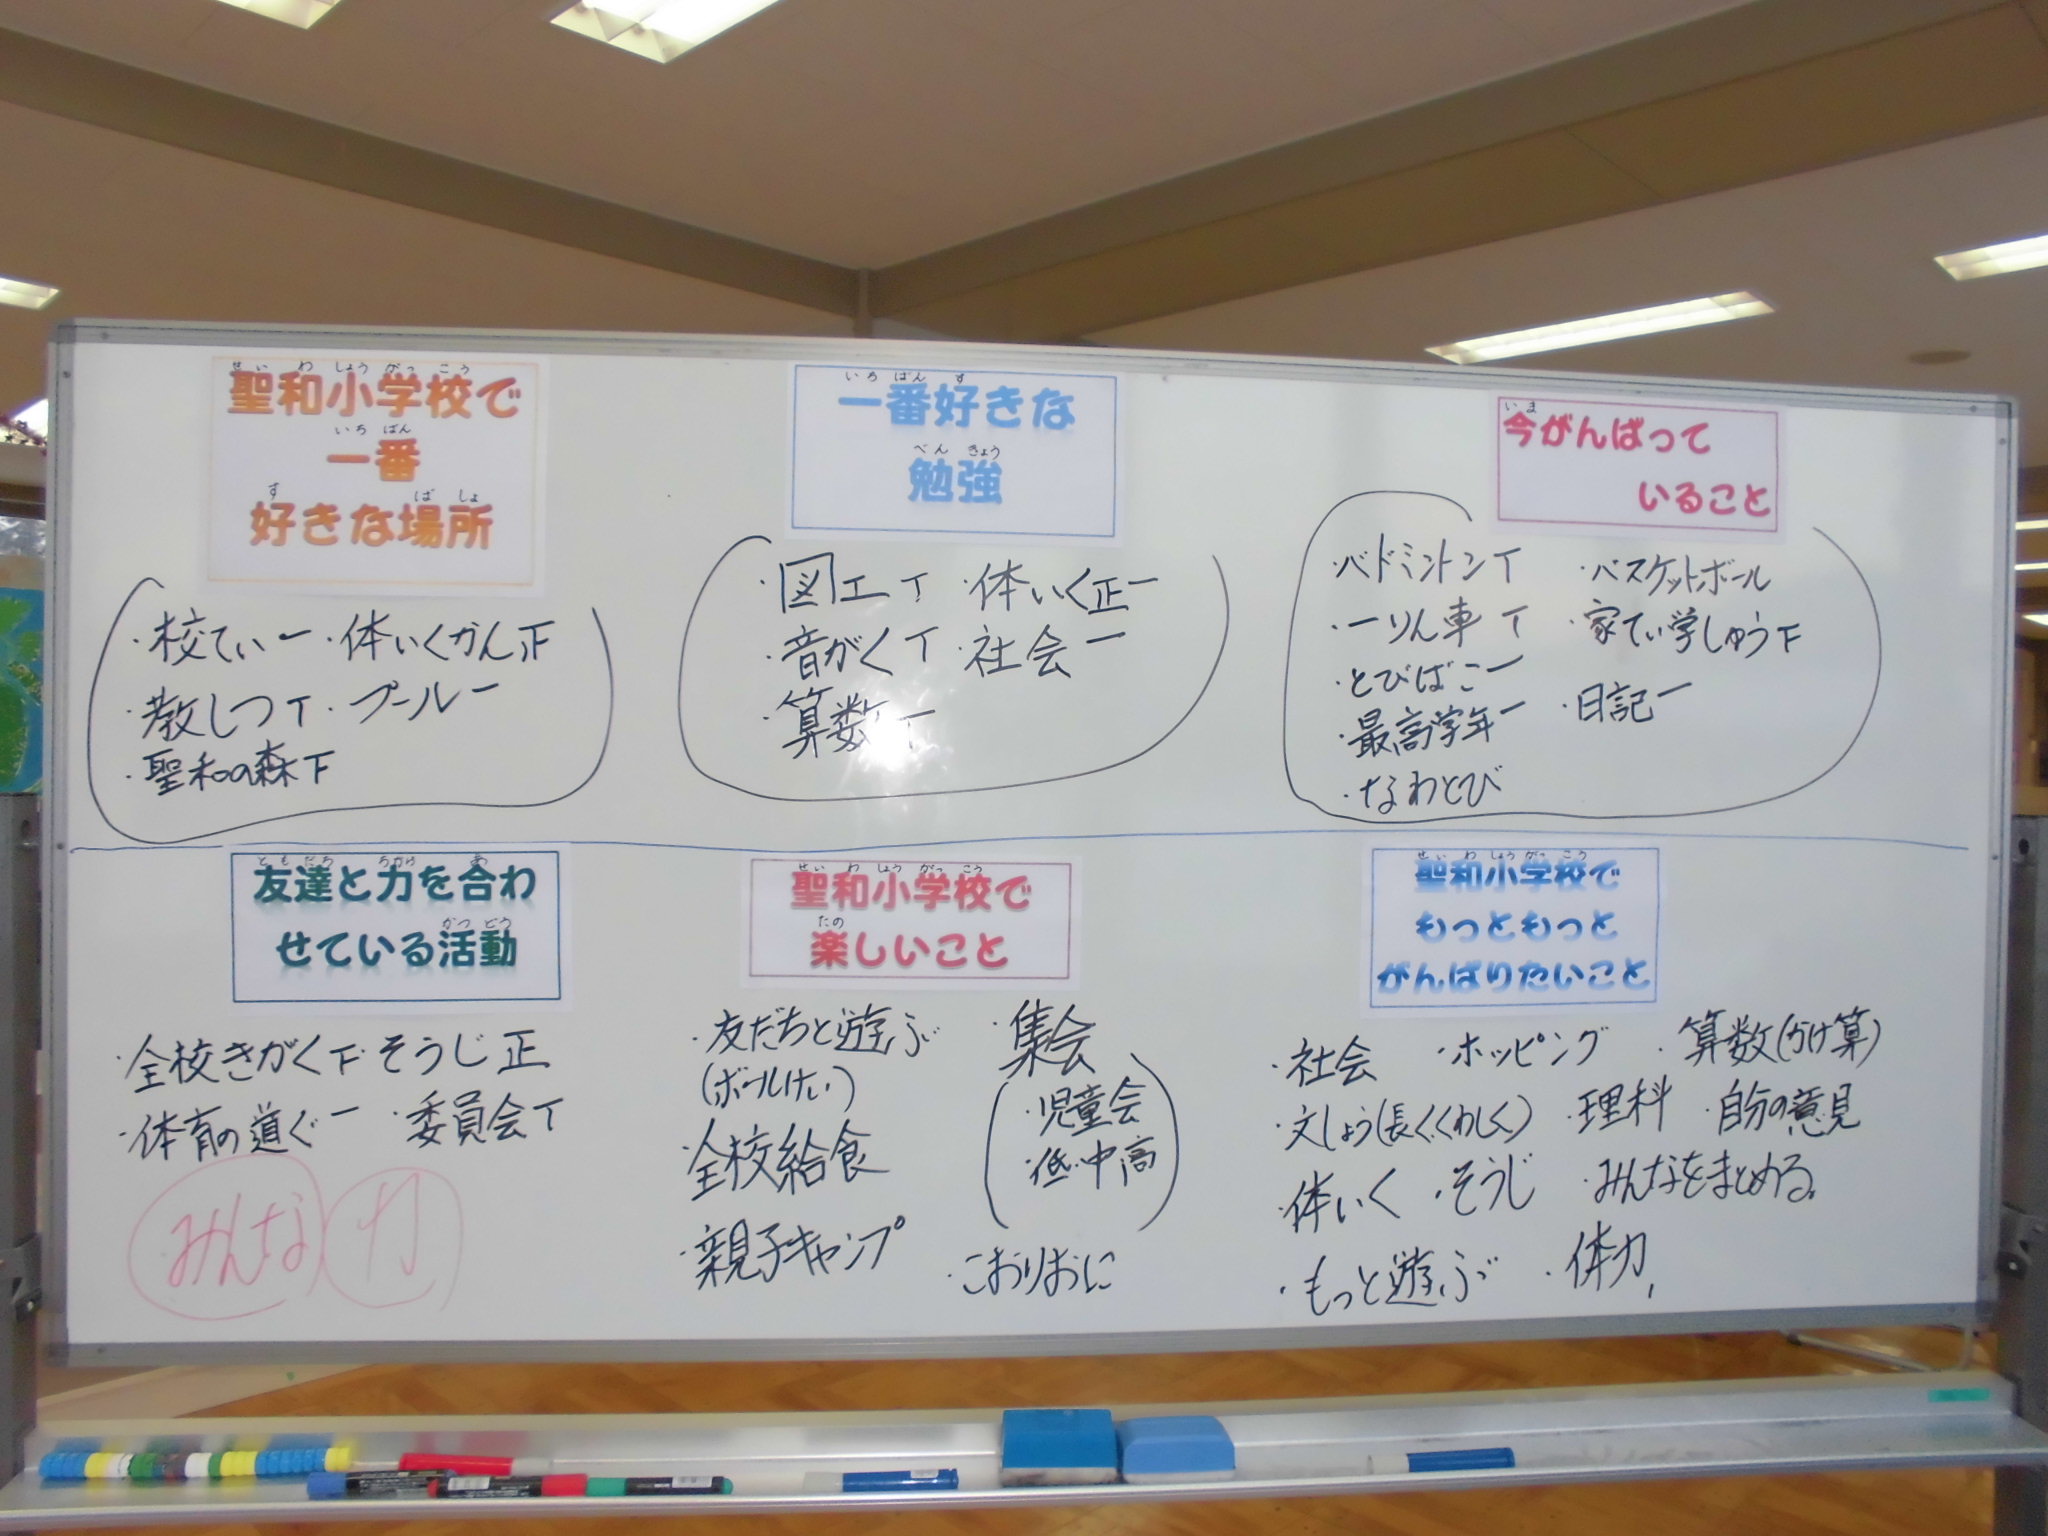 聖和小学校で
一番
好きな場所
・校てい一 ・体いくかん正
・教しつT ・プール一
・聖和の森下
一番好きな
勉強
・図工T ・体いく正一
・音がくT ・社会一
・算数T
今がんばって
いること
・バドミントンT ・バスケットボール
・一りん車T ・家てい学しゅう下
・とびばこ一
・最高学年一 ・日記一
・なわとび
友達と力を合わ
せている活動
・全校きがく下 ・そうじ正
・体育の道ぐ一 ・委員会T
みんな 力
聖和小学校で
楽しいこと
・友だちと遊ぶ
(ボールけい)
・全校給食
・親子キャンプ
・集会
・児童会
・低・中・高
・こおりおに
聖和小学校で
もっともっと
がんばりたいこと
・社会 ・ホッピング ・算数(かけ算)
・文しょう(長く、くわしく) ・理科 ・自分の意見
・体いく ・そうじ ・みんなをまとめる。
・もっと遊ぶ ・体力